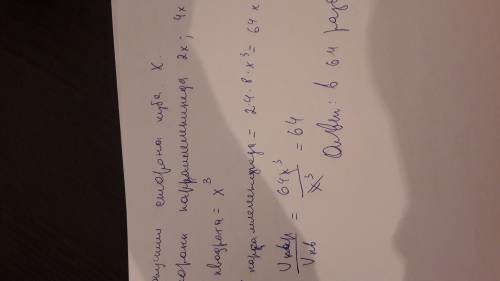 сторона куба x.
стороны параллелепипеда 2x; 4x
квадрата = x³
параллелепипеда = 2·4·8·x³ = 64x
= 64x³ / x³ = 64
Ответ: в 64 раза